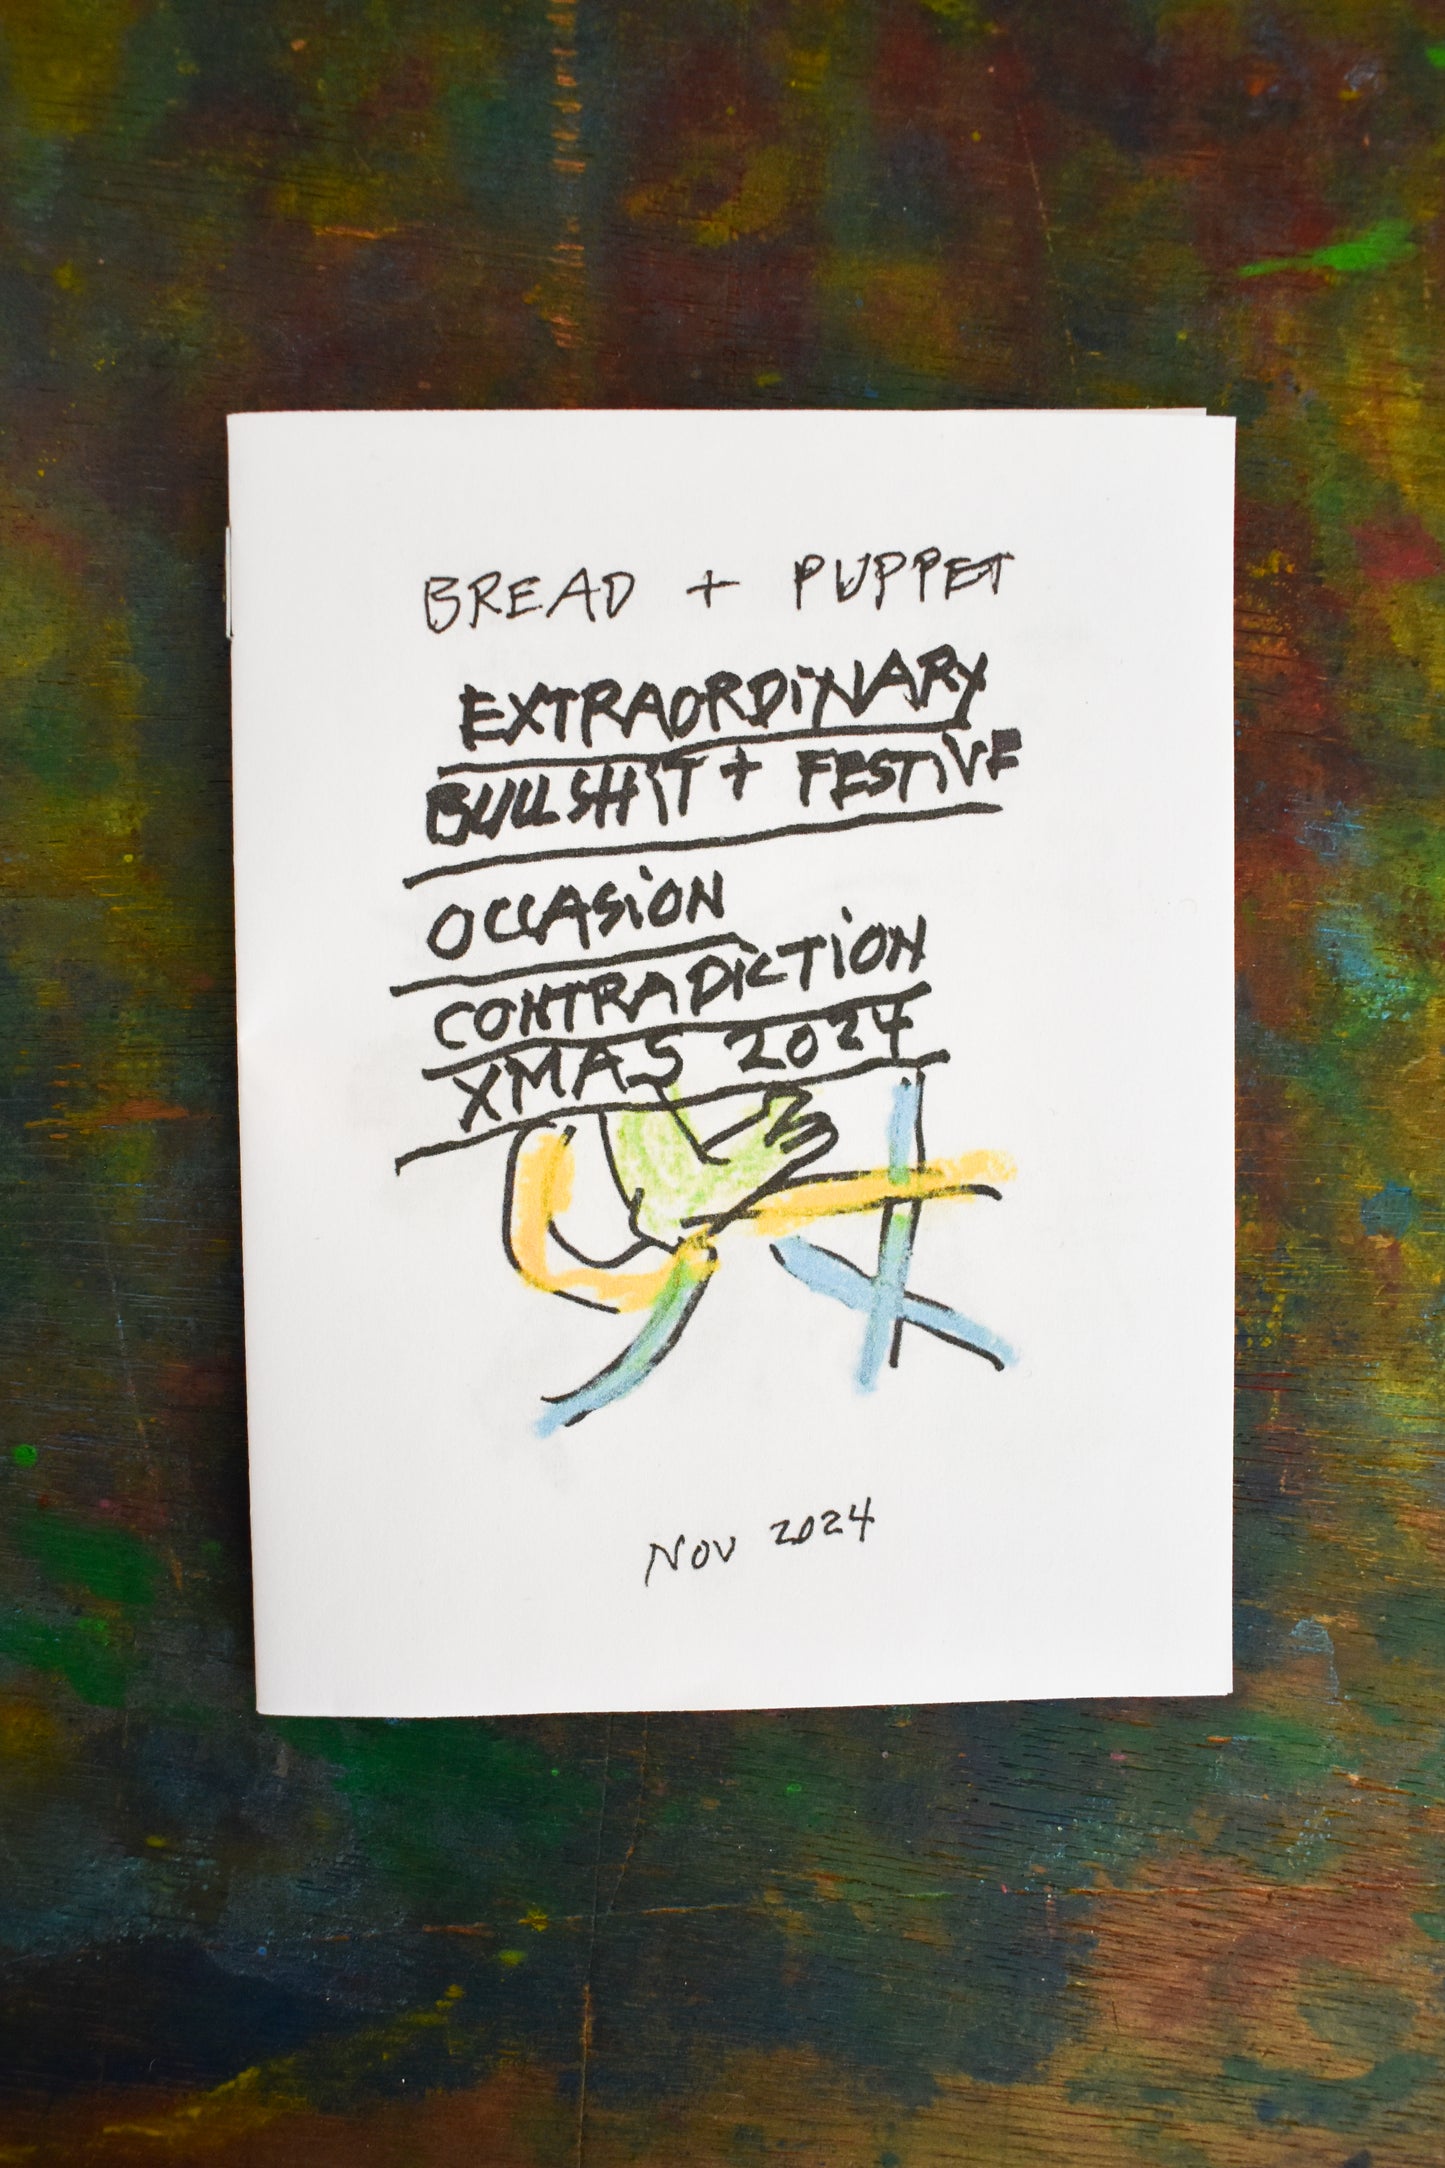 BREAD + PUPPET
EXTRAORDiNARY
BULLSHiT + FESTiVE
OCCASiON
CONTRADiCTiON
XMAS 2024
NOV 2024